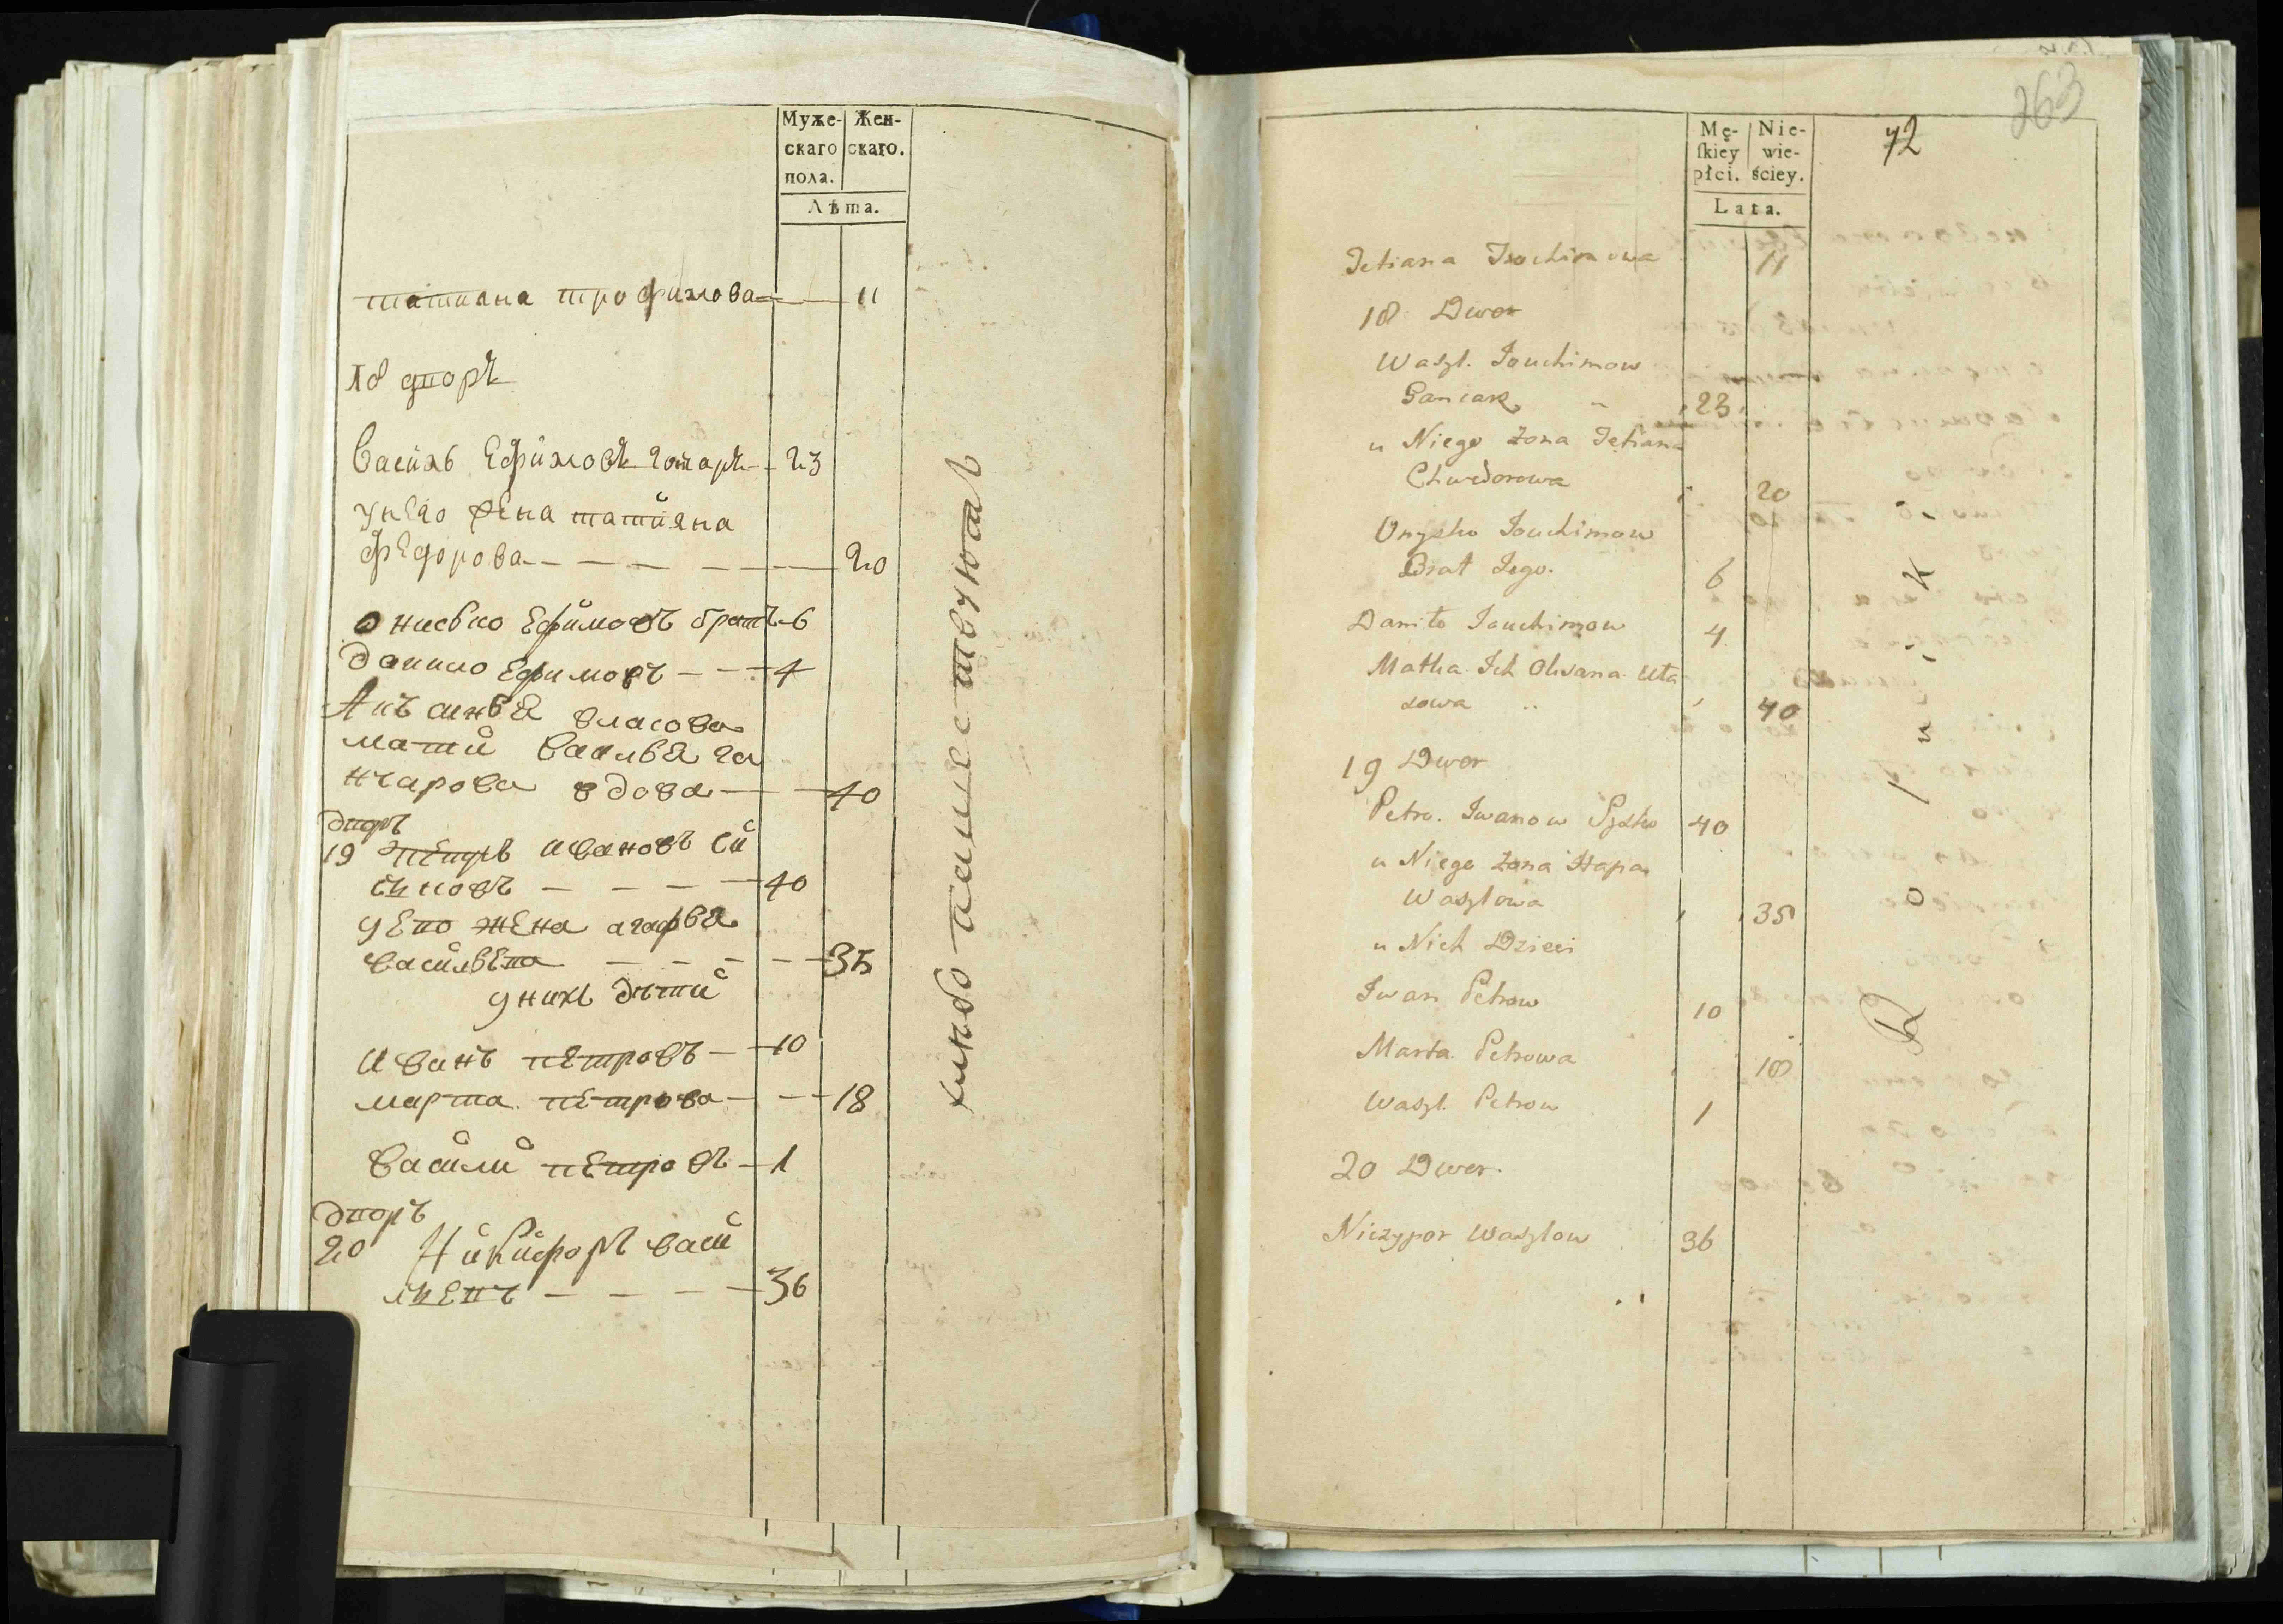 Муже-
скаго
пола.
Жен-
скаго.
Лѣта.
татиана трофимова 11
18 дворъ
Василь Ефимовъ гончаръ 23
унего жена татияна
Федорова 20
онисько Ефимовъ братъ 6
данило Ефимовъ 4
власова
мати васильва га
нчарова вдова 40
дворъ
19 петръ ивановъ
40
жена агафва
васильева 35
унихъ дѣтий
иванъ петровъ 10
марта петрова 18
василий петровъ 1
дворъ
20 Никифоръ васи
льевъ 36
263
Mę-
skiey
płci.
Nie-
wie-
ściey.
Lata.
72
Tetiana Jouchimowa 11
18 Dwor
Wasyl. Jouchimow
Ganiarz 23
u Niego zona Tetiana
Chwedorowa 20
Onysko Jouchimow
Brat Jego. 6
Daniło Jouchimow 4
Matka Ich Olisana Uła
sowa 40
19 Dwor
Petro. Iwanow 40
u Niego zona Hapa
Wasylowa 35
u Nich Dzieci
Iwan Petrow 10
Marta Petrowa 18
Wasyl. Petrow 1
20 Dwor.
Niczypor Wasylow 36